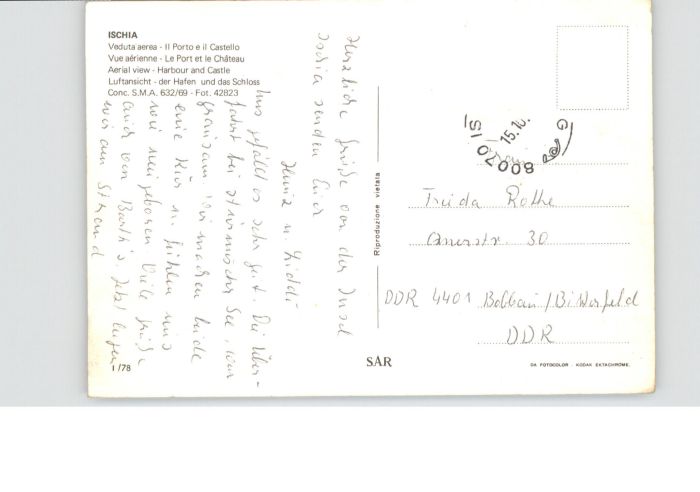 ISCHIA
Veduta aerea - Il Porto e il Castello
Vue aérienne - Le Port et le Château
Aerial view - Harbour and Castle
Luftansicht - der Hafen und das Schloss
Conc. S.M.A. 632/69 - Fot. 42823
Herzliche Grüße von der Insel
Ischia senden Euch
Heinz u.
Uns gefällt es sehr gut. Die Über-
fahrt bei stürmischer See, war
grausam. Wir machen beide
eine Kur u. fühlen uns
wie neugeboren Viele Grüße
auch von Barth's. Jetzt liegen
wir am Strand
1/78
Riproduzione vietata
SAR
80070 IS
15.10.
Frieda Rothe
30
DDR 4401 Bobbau / Bitterfeld
DDR
DA FOTOCOLOR - KODAK EKTACHROME.